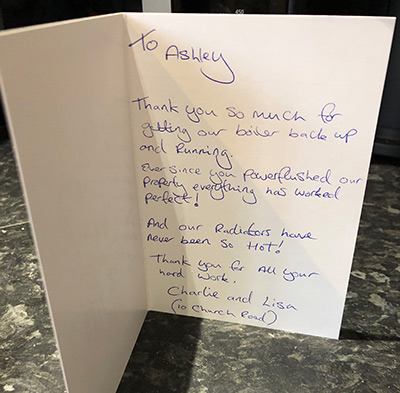 450
To Ashley
Thank you so much for
getting our boiler back up
and Running.
Ever since you powerflushed our
property everything has worked
perfect!
And our Radiators have
never been so Hot!
Thank you for All your
hard work.
Charlie and Lisa
(10 Church Road)